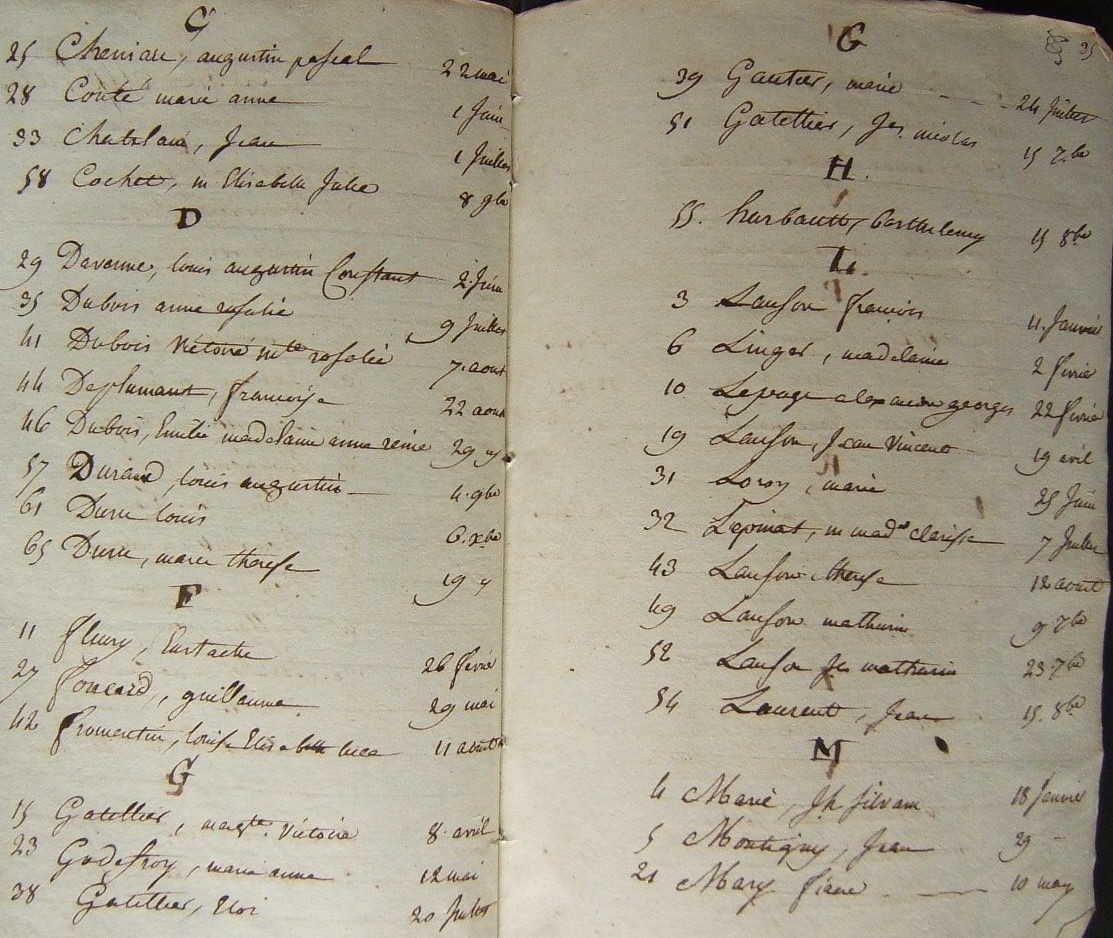 C
25 Cheniau, augustin pascal 22 mai
28 Conté marie anne 1 Juin
33 Chatelain, Jean 1 Juillet
58 Cochet, m Elisabeth Julie 8 9bre
D
29 Davenne, louis augustin Constant 2 Juin
35 Dubois anne rosalie 9 Juillet
41 Dubois Victoire mle rosalie 7 aout
44 Deplumant, françoise 22 aout
46 Dubois, Emilie madelaine anne reine 29 y
57 Durand louis augustin 4 9bre
61 Duru louis 6 xbre
65 Duru, marie therese 19 y
F
11 fleury, Eustache 26 fevrier
27 foucard, guillaume 29 mai
42 fromentin, louise Elisabeth 11 aout
G
15 Gatellier, margte Victoire 8 avril
23 Godefroy, marie anne 12 mai
38 Gatellier, Eloi 20 Juillet
35
G
39 Gautier, marie 24 Juillet
51 Gatellier, Jes nicolas 15 7.bre
H.
55. hurbault, barthelemy 15 8bre
L.
3 Lanson françois 11. Janvier
6 Linger, madelaine 2 fevrier
10 Lepage alexandre georges 22 fevrier
19 Lanson, Jean Vincent 19 avril
31 Loroy, marie 25 Juin
32 Lepinat, m madne clarisse 7 Juillet
43 Lanson therese 12 aout
49 Lanson mathurin 9 7bre
52 Lanson Jes mathurin 23 7bre
54 Laurent, Jean 15. 8bre
M
4 Marié, Jh silvain 18 Janvier
5 Montigny, Jean 29 -
21 Mary, Pierre 10 may